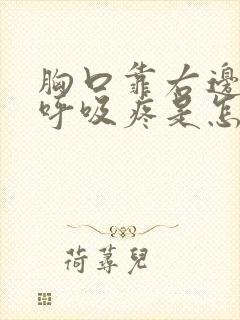 胸口靠右邊
呼吸疼是怎
荷蕁兒